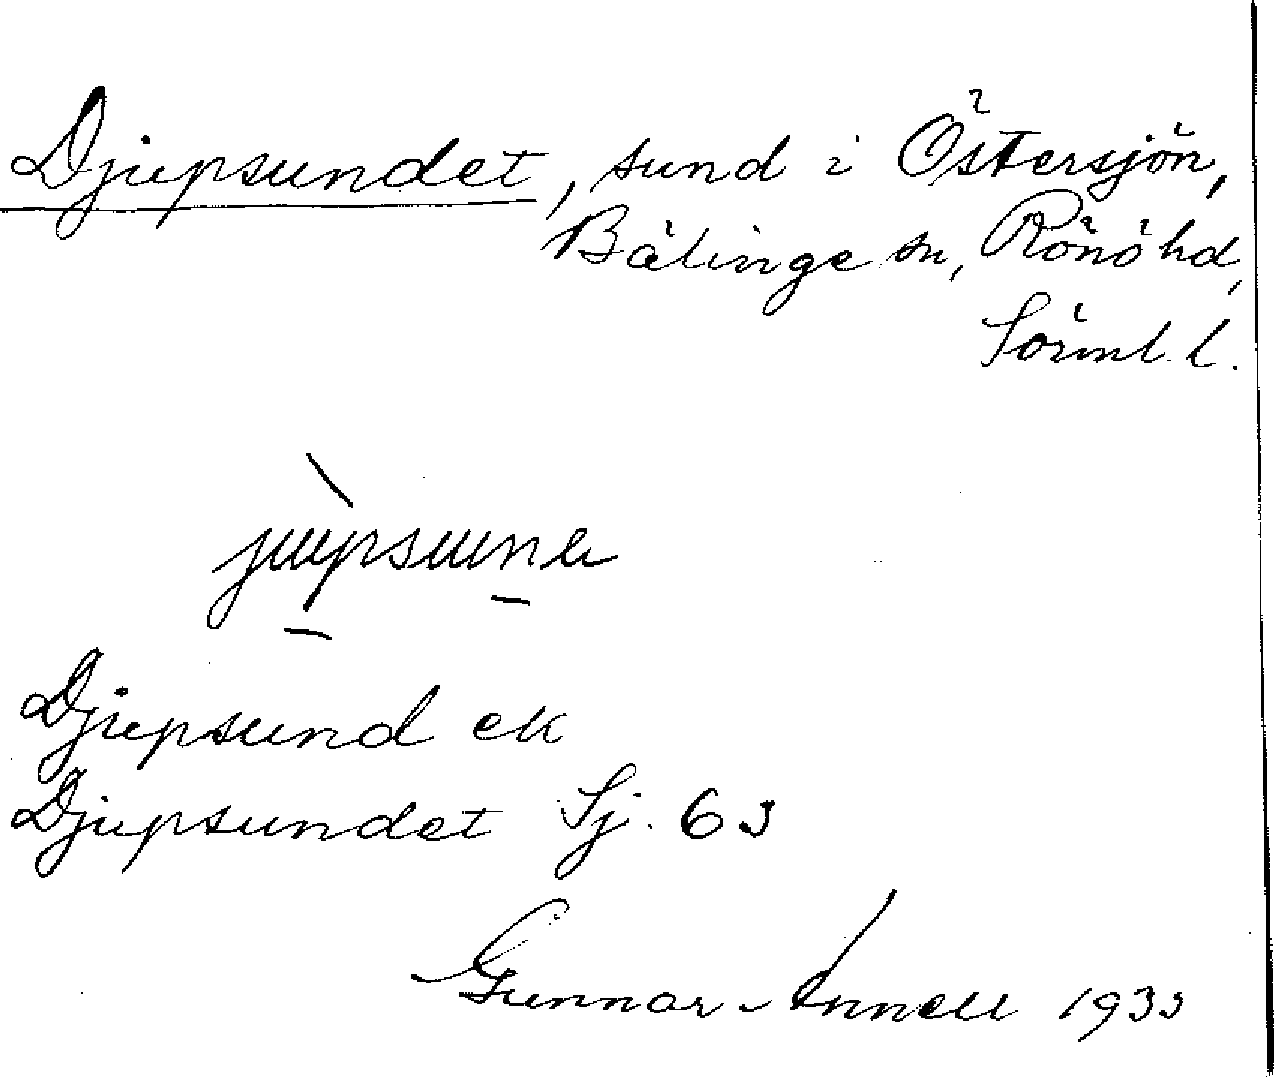 Djupsundet, sund i Östersjön,
Bälinge sn, Rönö hd,
Sörml. l.
Djupsund ek
Djupsundet Sj. 63
Gunnar Annell 1933